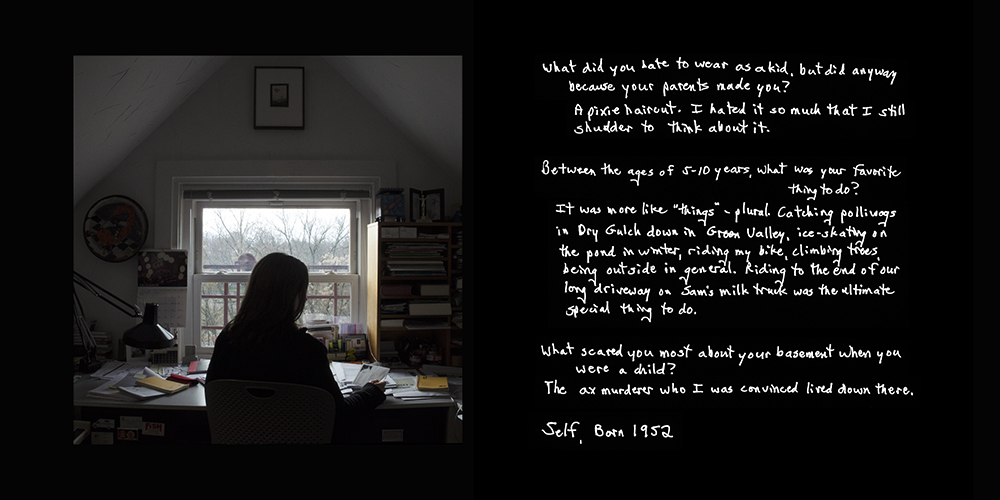 What did you hate to wear as a kid, but did anyway
because your parents made you?
A pixie haircut. I hated it so much that I still
shudder to think about it.
Between the ages of 5-10 years, what was your favorite
thing to do?
It was more like "things" - plural. Catching polliwogs
in Dry Gulch down in Green Valley, ice-skating on
the pond in winter, riding my bike, climbing trees,
being outside in general. Riding to the end of our
long driveway on Sam's milk truck was the ultimate
special thing to do.
What scared you most about your basement when you
were a child?
The ax murderer who I was convinced lived down there.
Self, Born 1952